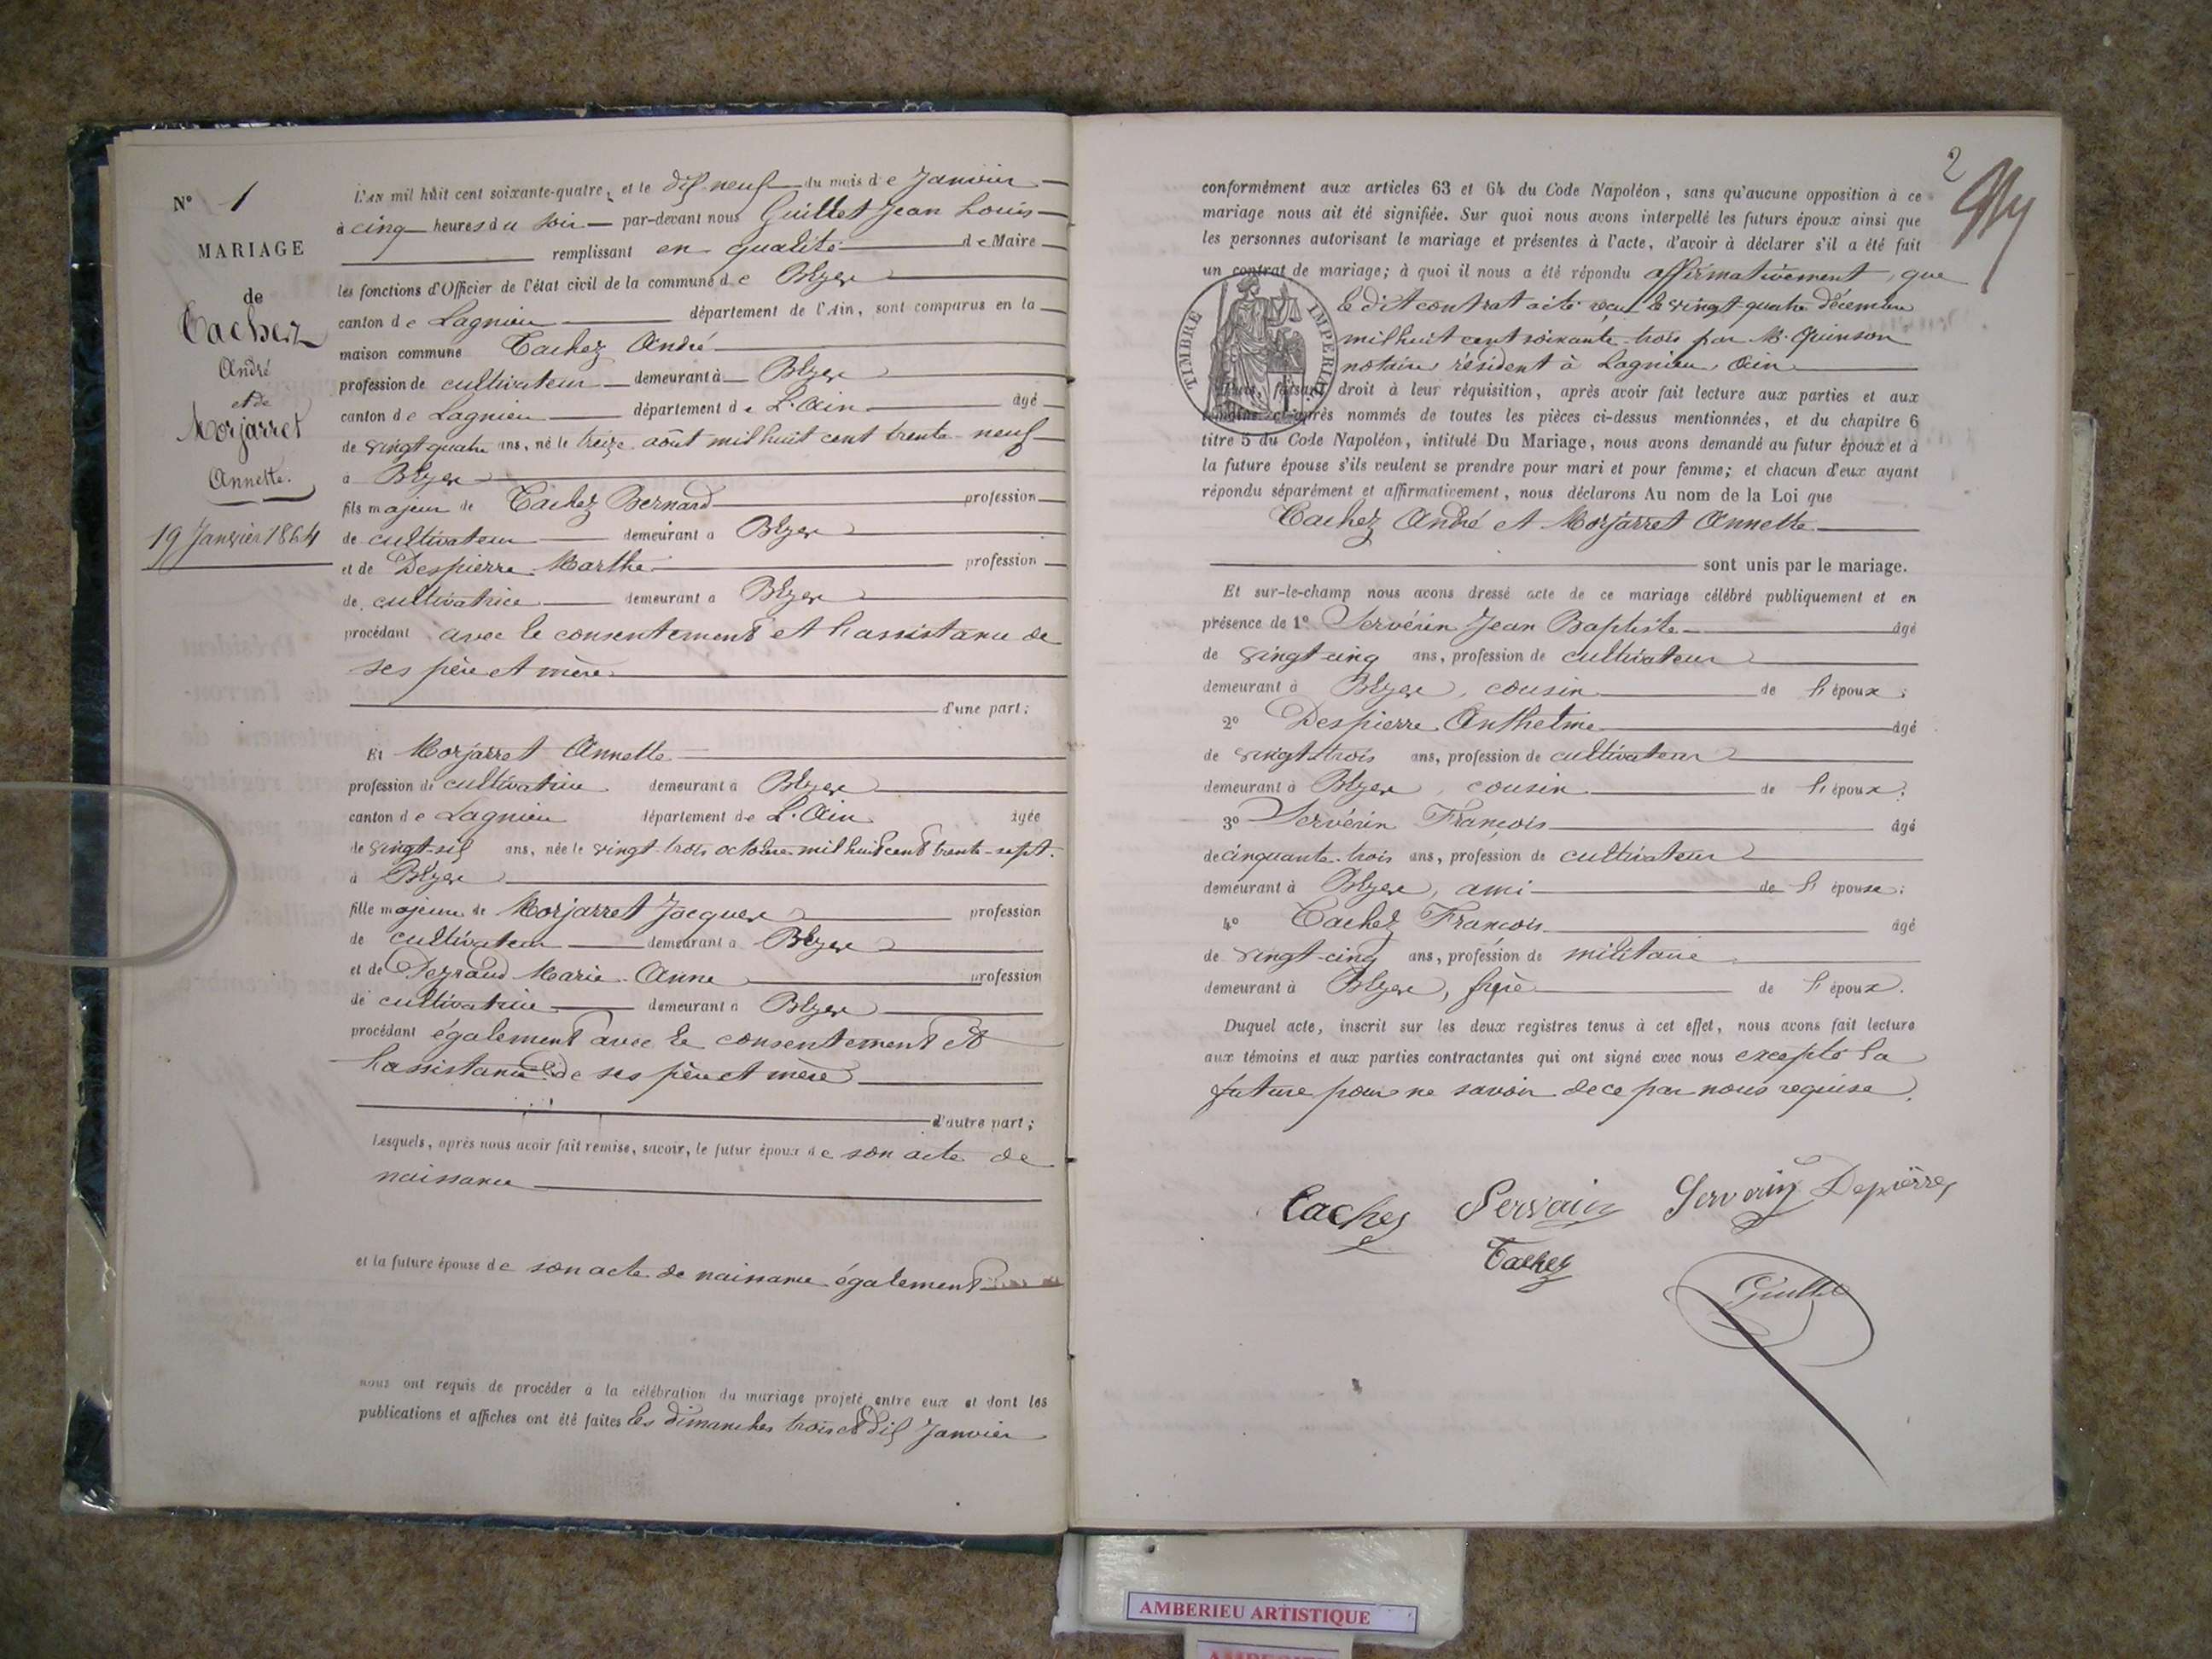 N° 1
MARIAGE
de
Cachez
André
et de
Morjarret
Annette.
19 Janvier 1864
L'an mil huit cent soixante-quatre, et le dix-neuf du mois de Janvier
à cinq heures du soir par-devant nous Guillet Jean Louis
remplissant en qualité de Maire
les fonctions d'Officier de l'état civil de la commune de Blyes
canton de Lagnieu département de l'Ain, sont comparus en la
maison commune Cachez André
profession de cultivateur demeurant à Blyes
canton de Lagnieu département de L'Ain âgé
de vingt quatre ans, né le treize août mil huit cent trente-neuf
à Blyes
fils majeur de Cachez Bernard profession
de cultivateur demeurant à Blyes
et de Despierre Marthe profession
de cultivatrice demeurant à Blyes
procédant avec le consentement et l'assistance de
ses père et mère
d'une part;
Et Morjarret Annette
profession de cultivatrice demeurant à Blyes
canton de Lagnieu département de L'Ain âgée
de vingt-six ans, née le vingt-trois octobre mil huit cent trente-sept.
à Blyes
fille majeure de Morjarret Jacques profession
de cultivateur demeurant à Blyes
et de Peyraud Marie-Anne profession
de cultivatrice demeurant à Blyes
procédant également avec le consentement et
l'assistance de ses père et mère
d'autre part;
Lesquels, après nous avoir fait remise, savoir, le futur époux de son acte de
naissance
et la future épouse de son acte de naissance également
nous ont requis de procéder à la célébration du mariage projeté entre eux et dont les
publications et affiches ont été faites les dimanches trois et dix Janvier
2
conformément aux articles 63 et 64 du Code Napoléon, sans qu'aucune opposition à ce
mariage nous ait été signifiée. Sur quoi nous avons interpellé les futurs époux ainsi que
les personnes autorisant le mariage et présentes à l'acte, d'avoir à déclarer s'il a été fait
un contrat de mariage; à quoi il nous a été répondu affirmativement, que
le dit contrat a été reçu le vingt-quatre décembre
mil huit cent soixante-trois par M. Quinson
notaire résident à Lagnieu, Ain
TIMBRE IMPERIAL
faisant droit à leur réquisition, après avoir fait lecture aux parties et aux
témoins ci-après nommés de toutes les pièces ci-dessus mentionnées, et du chapitre 6
titre 5 du Code Napoléon, intitulé Du Mariage, nous avons demandé au futur époux et à
la future épouse s'ils veulent se prendre pour mari et pour femme; et chacun d'eux ayant
répondu séparément et affirmativement, nous déclarons Au nom de la Loi que
Cachez André et Morjarret Annette
sont unis par le mariage.
Et sur-le-champ nous avons dressé acte de ce mariage célébré publiquement et en
présence de 1° Servérin Jean Baptiste âgé
de vingt-cinq ans, profession de cultivateur
demeurant à Blyes, cousin de l'époux;
2° Despierre Anthelme âgé
de vingt-trois ans, profession de cultivateur
demeurant à Blyes, cousin de l'époux;
3° Servérin François âgé
de cinquante-trois ans, profession de cultivateur
demeurant à Blyes, ami de l'épouse;
4° Cachez François âgé
de vingt-cinq ans, profession de militaire
demeurant à Blyes, frère de l'époux.
Duquel acte, inscrit sur les deux registres tenus à cet effet, nous avons fait lecture
aux témoins et aux parties contractantes qui ont signé avec nous excepté la
future pour ne savoir de ce par nous requise.
Cachez Servain Servérin Depierre
Cachez
Guillet
AMBERIEU ARTISTIQUE